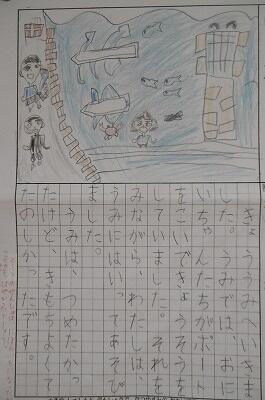 きょう、うみへいきま
した。うみでは、おに
いちゃんたちがボート
をこいできょうそうを
していました。それを
みながら、わたしは、
うみにはいってあそび
ました。
うみは、つめたかっ
たけど、きもちよくて
たのしかったです。